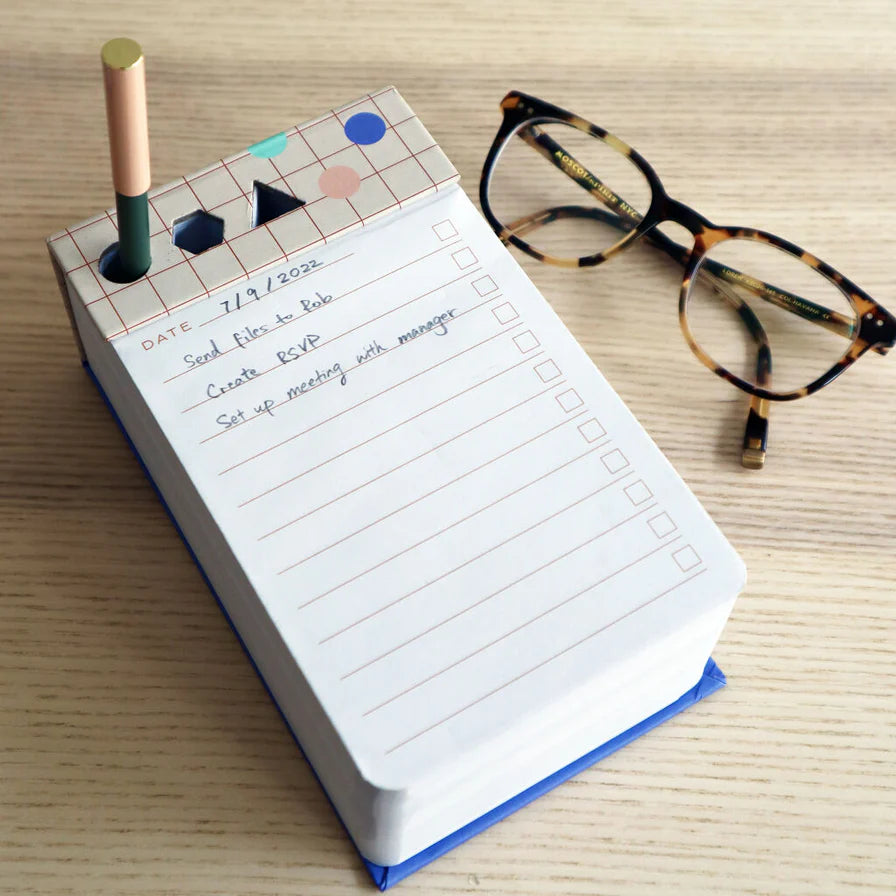 DATE 7/9/2022
Send files to Rob
Create RSVP
Set up meeting with manager
MOSCOT
NYC